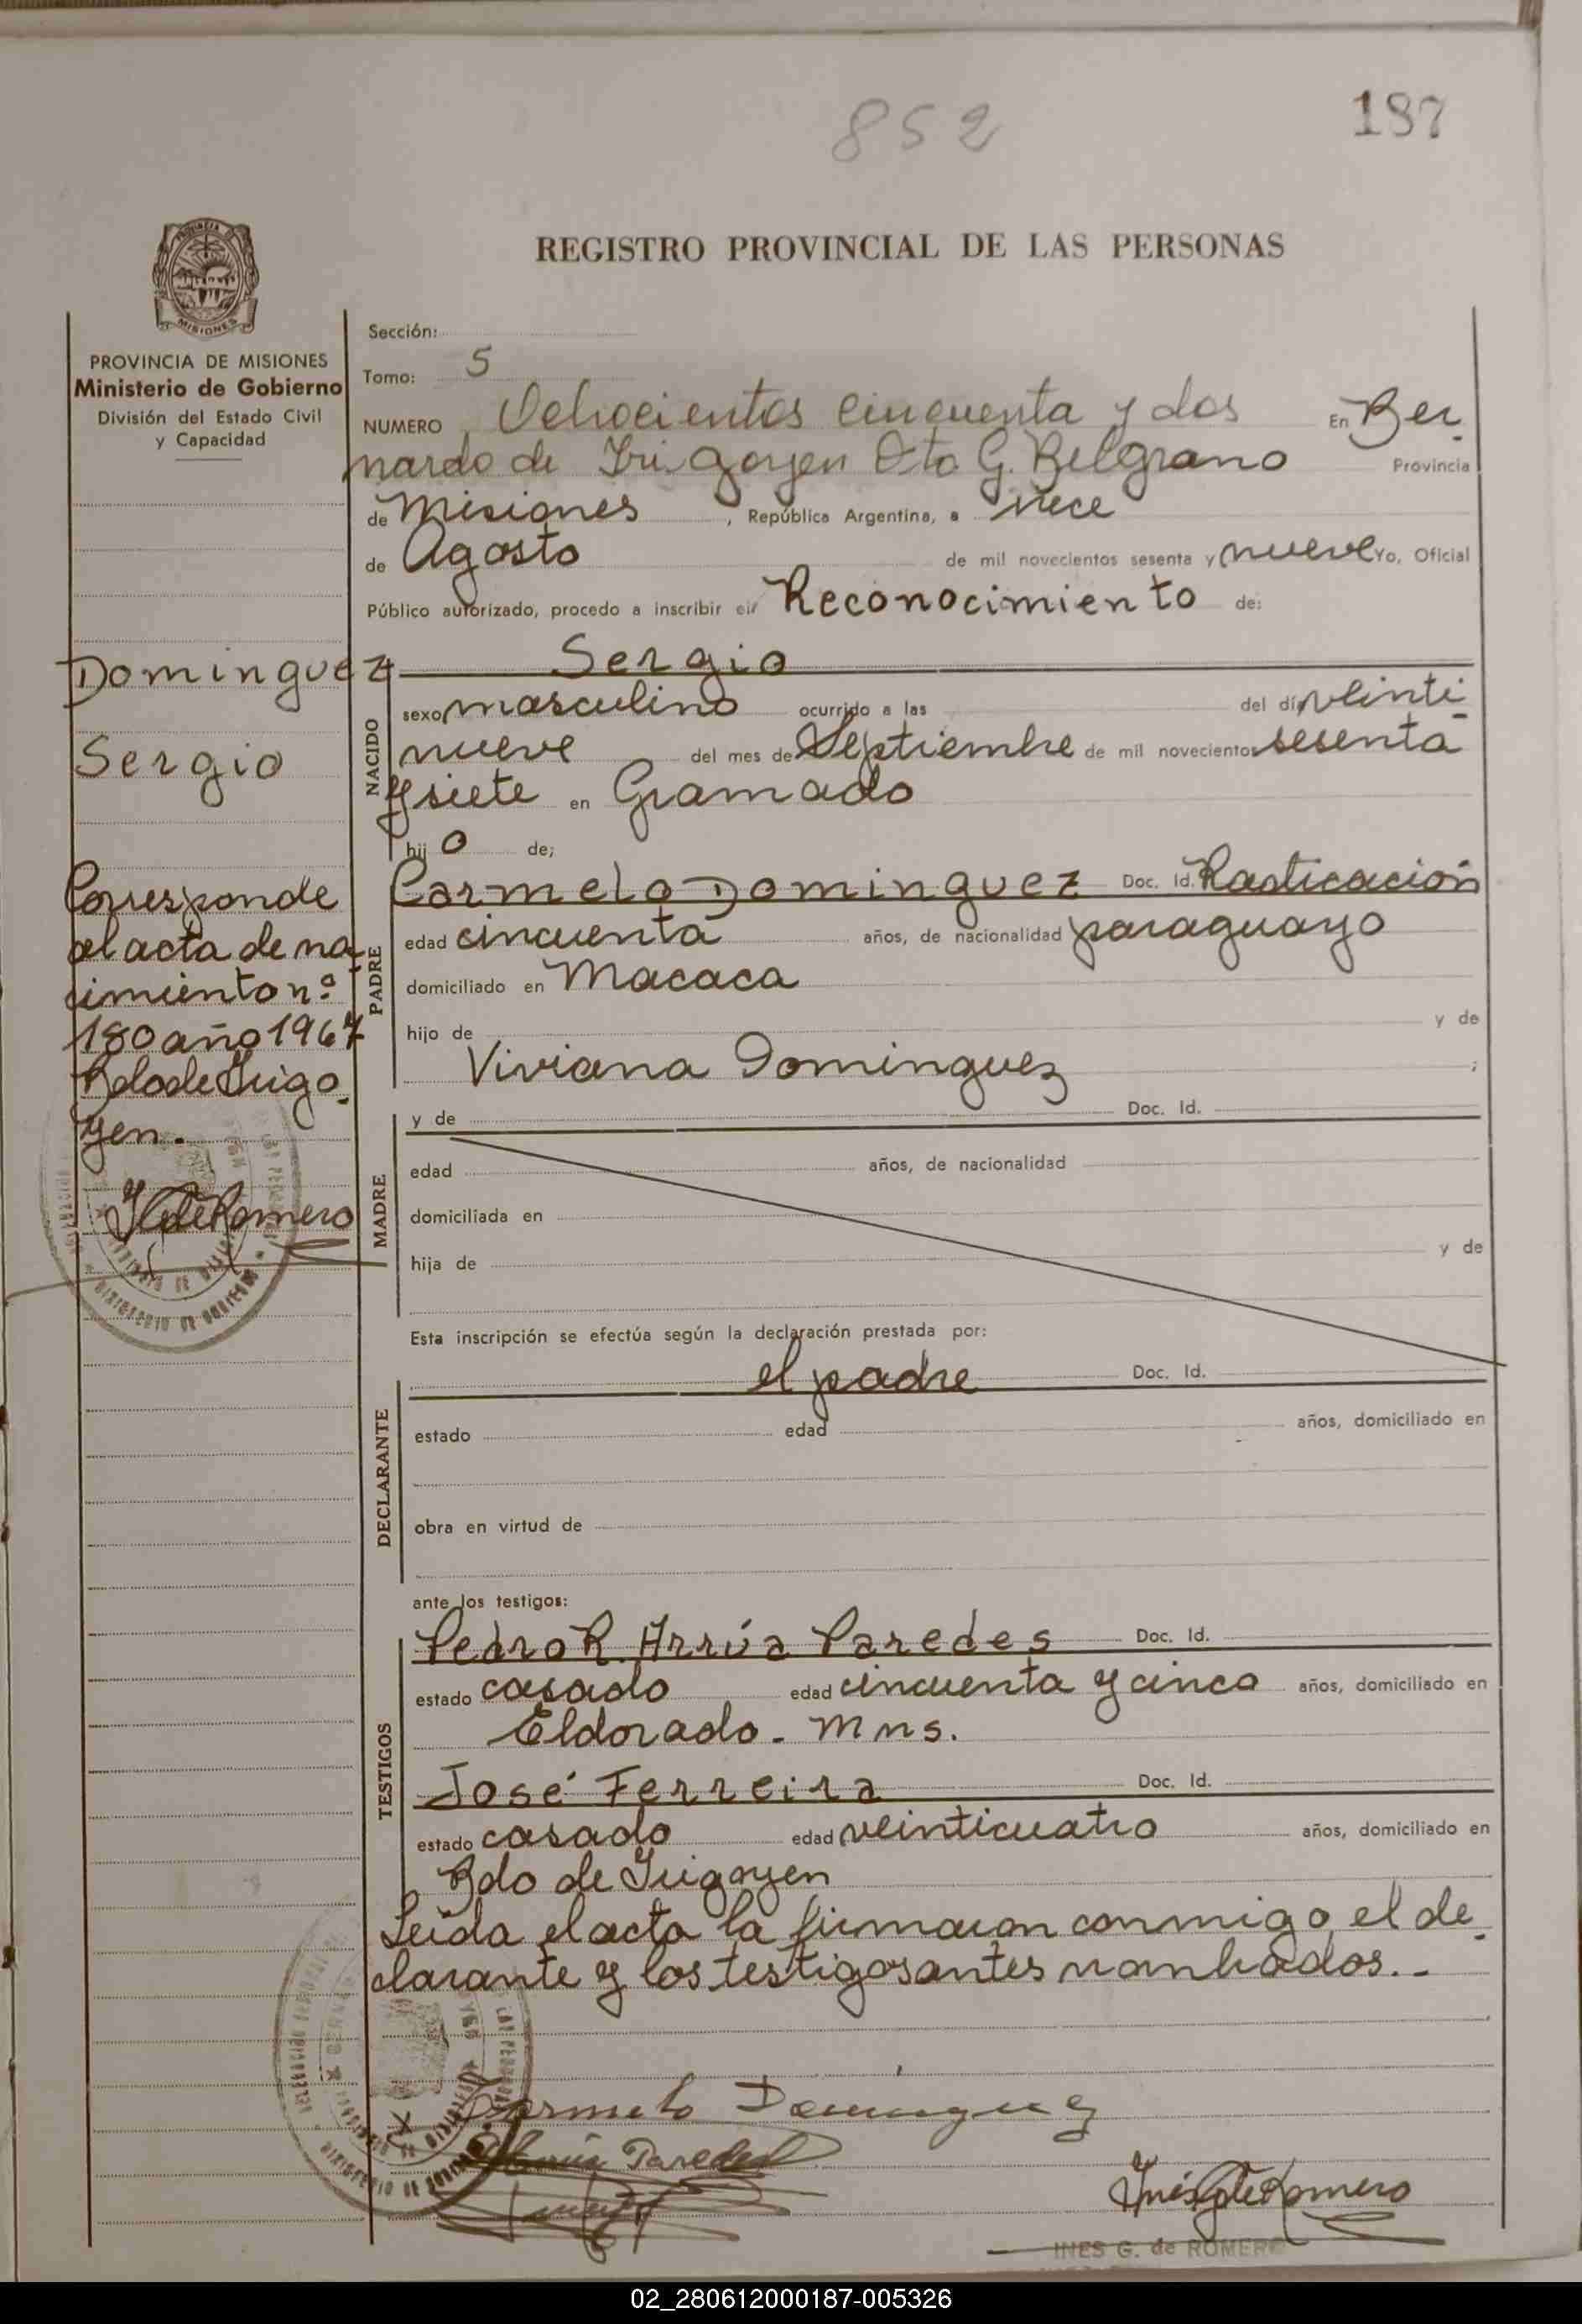 852
187
REGISTRO PROVINCIAL DE LAS PERSONAS
PROVINCIA DE
MISIONES
PROVINCIA DE MISIONES
Ministerio de Gobierno
División del Estado Civil
y Capacidad
Sección:
Tomo: 5
NUMERO Ochocientos cincuenta y dos En Ber-
nardo de Irigoyen Dto G. Belgrano Provincia
de Misiones, República Argentina, a trece
de Agosto de mil novecientos sesenta y nueve Yo, Oficial
Público autorizado, procedo a inscribir el Reconocimiento de:
Dominguez
Sergio
Sergio
NACIDO
sexo masculino ocurrido a las del día veinti-
nueve del mes de Septiembre de mil novecientos sesenta
y siete en Gramado
hijo de;
Corresponde
al acta de na
cimiento n.º
180 año 1967
Bdo de Irigo-
yen.
I G de Romero
PADRE
Carmelo Dominguez Doc. Id. Radicación
edad cincuenta años, de nacionalidad paraguayo
domiciliado en Macaca
hijo de y de
Viviana Dominguez ;
MADRE
y de Doc. Id.
edad años, de nacionalidad
domiciliada en
hija de y de
Esta inscripción se efectúa según la declaración prestada por:
DECLARANTE
el padre Doc. Id.
estado edad años, domiciliado en
obra en virtud de
ante los testigos:
TESTIGOS
Pedro R. Arrúa Paredes Doc. Id.
estado casado edad cincuenta y cinco años, domiciliado en
Eldorado - Mns.
José Ferreira Doc. Id.
estado casado edad veinticuatro años, domiciliado en
Bdo de Irigoyen
Leida el acta la firmaron conmigo el de-
clarante y los testigos antes nombrados.-
MINISTERIO DE GOBIERNO
Carmelo Dominguez
Arrúa Paredes
Inés G de Romero
INES G. de ROMERO
02_280612000187-005326